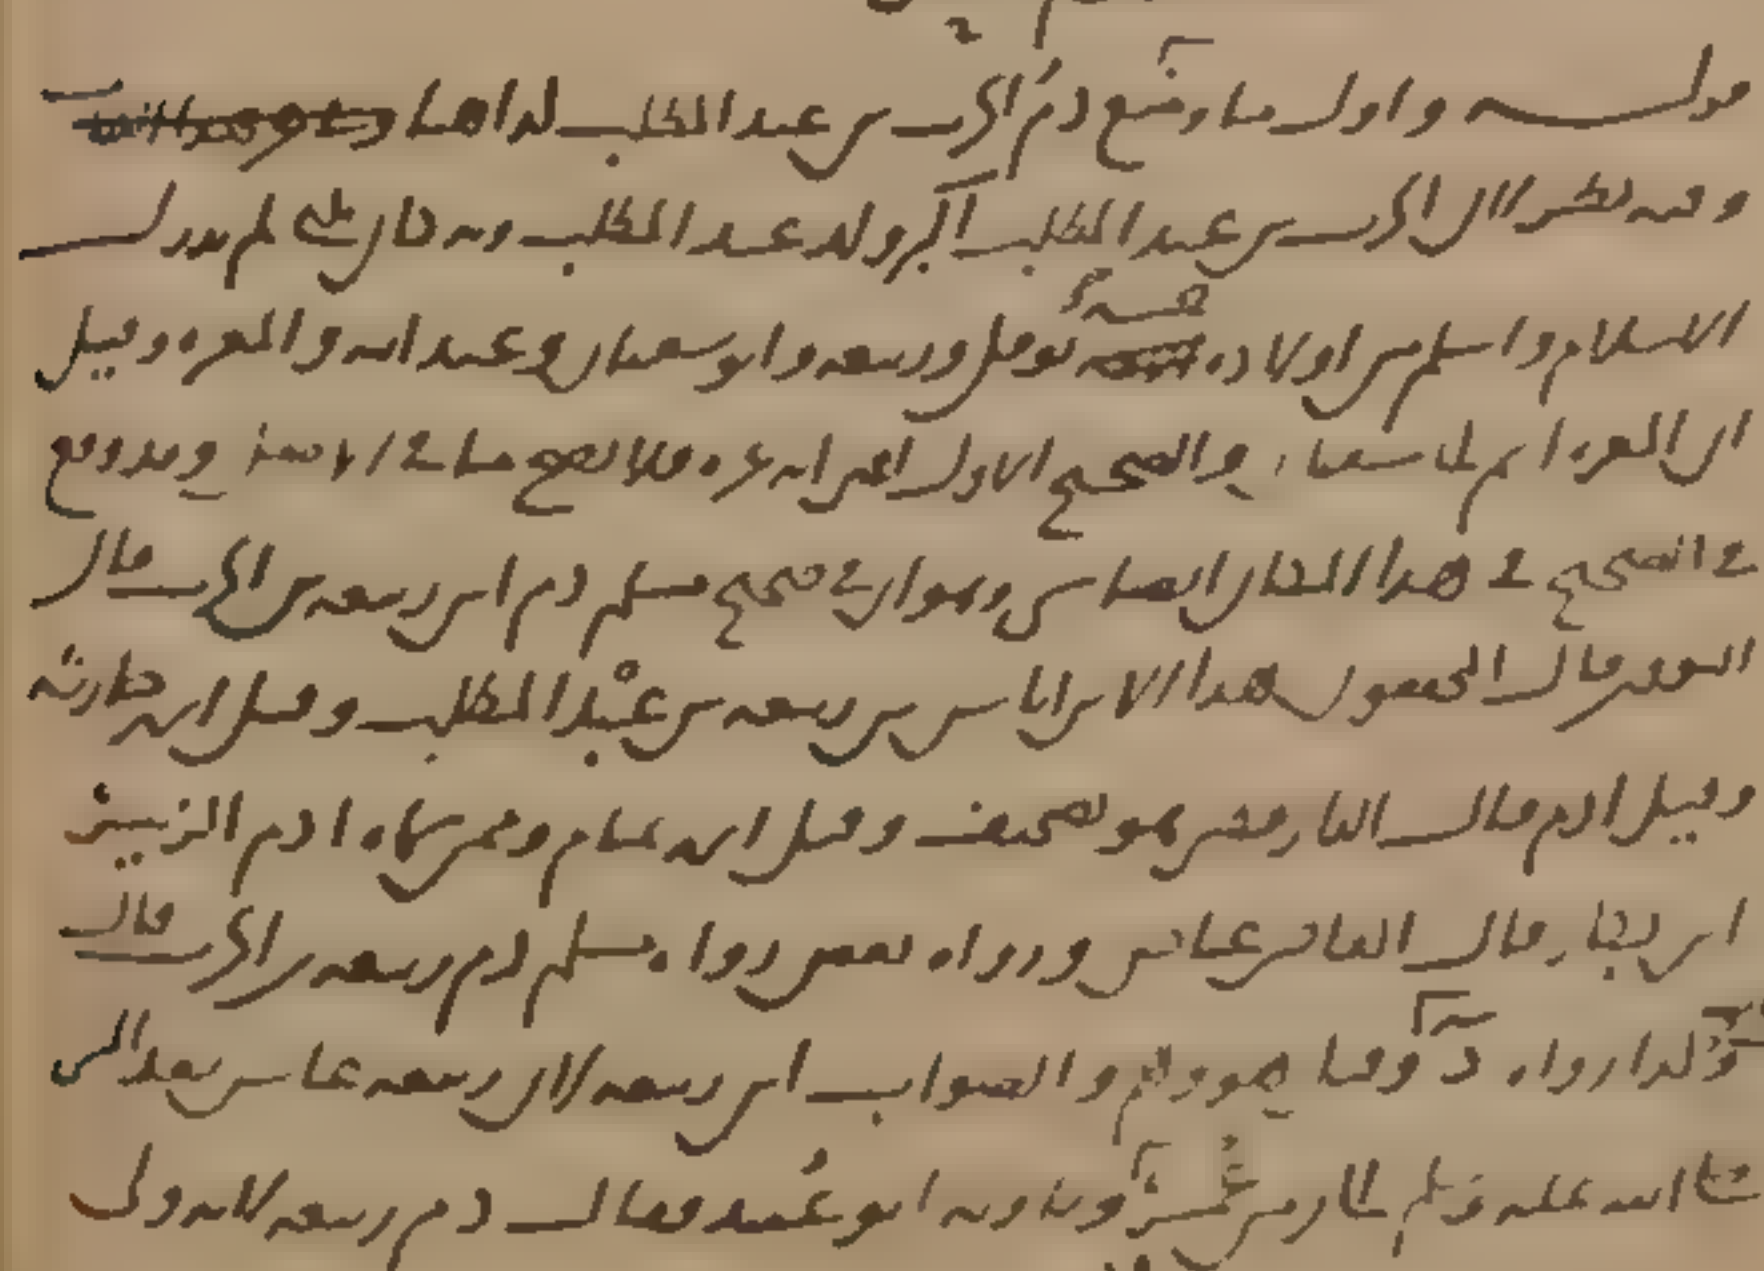 قوله واول ما وضع دم الحرث بن عبد المطلب كذا هنا
وفيه نظر لان الحرث بن عبد المطلب اكبر ولد عبد المطلب وبه كان يكنى لم يدرك
الاسلام واسلم من اولاده خمسة نوفل وربيعة وابو سفيان وعبد الله والمغيرة وقيل
ان المغيرة اسم لابي سفيان والصحيح الاول اعني انه غيره فلا يصح ما في الاصل وقد وقع
في الصحيح في هذا المكان ايضا شي وهو ان في صحيح مسلم دم ابن ربيعة بن الحرث قال
النووي قال المحققون هذا الابن اياس بن ربيعة بن عبد المطلب وقيل اسمه حارثة
وقيل ادم قال الدارقطني وهو تصحيف وقيل اسمه تمام وممن سماه ادم الزبير
ابن بكار قال القاضي عياض ورواه بعض رواة مسلم دم ربيعة بن الحرث قال
وكذا رواه د وقيل هو وهم والصواب ابن ربيعة لان ربيعة عاش بعد النبي
صلى الله عليه وسلم الى زمن عمر وتاوله ابو عبيد فقال دم ربيعة لانه ولي